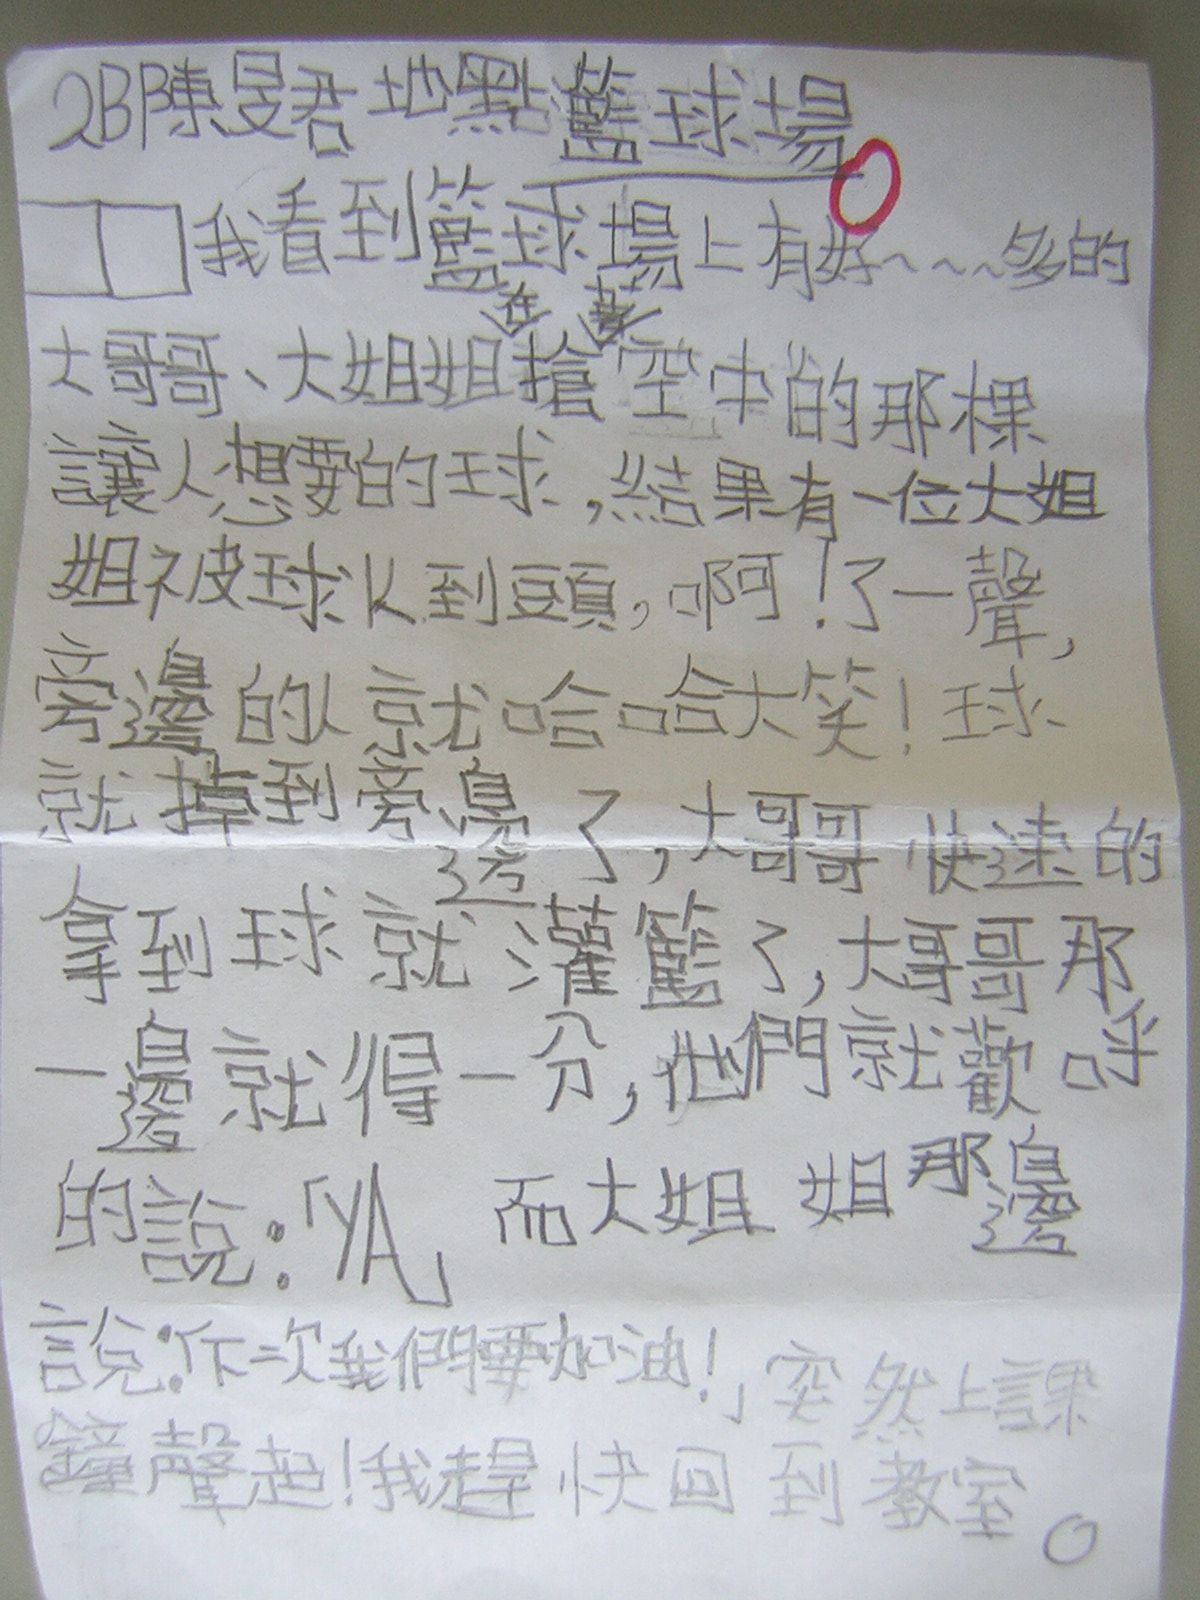 2B陳旻君地點籃球場
我看到籃球場上有好~~~多的
大哥哥、大姐姐在搶著空中的那棵
讓人想要的球,結果有一位大姐
姐被球K到頭,啊!了一聲,
旁邊的人就哈哈大笑!球
就掉到旁邊了,大哥哥快速的
拿到球就灌籃了,大哥哥那
一邊就得一分,他們就歡呼
的說:「YA」而大姐姐那邊
說:「下次我們要加油!」突然上課
鐘聲起!我趕快回到教室。